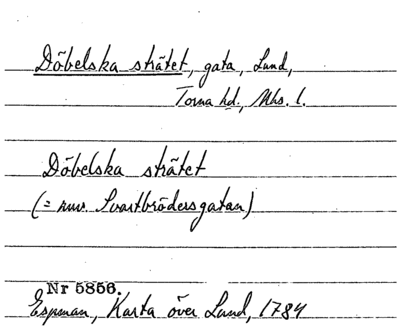 Döbelska strätet, gata, Lund,
Torna hd., Mhs. l.
Döbelska strätet
(= nuv. Svartbrödersgatan)
Nr 5856.
Espman, Karta över Lund, 1784